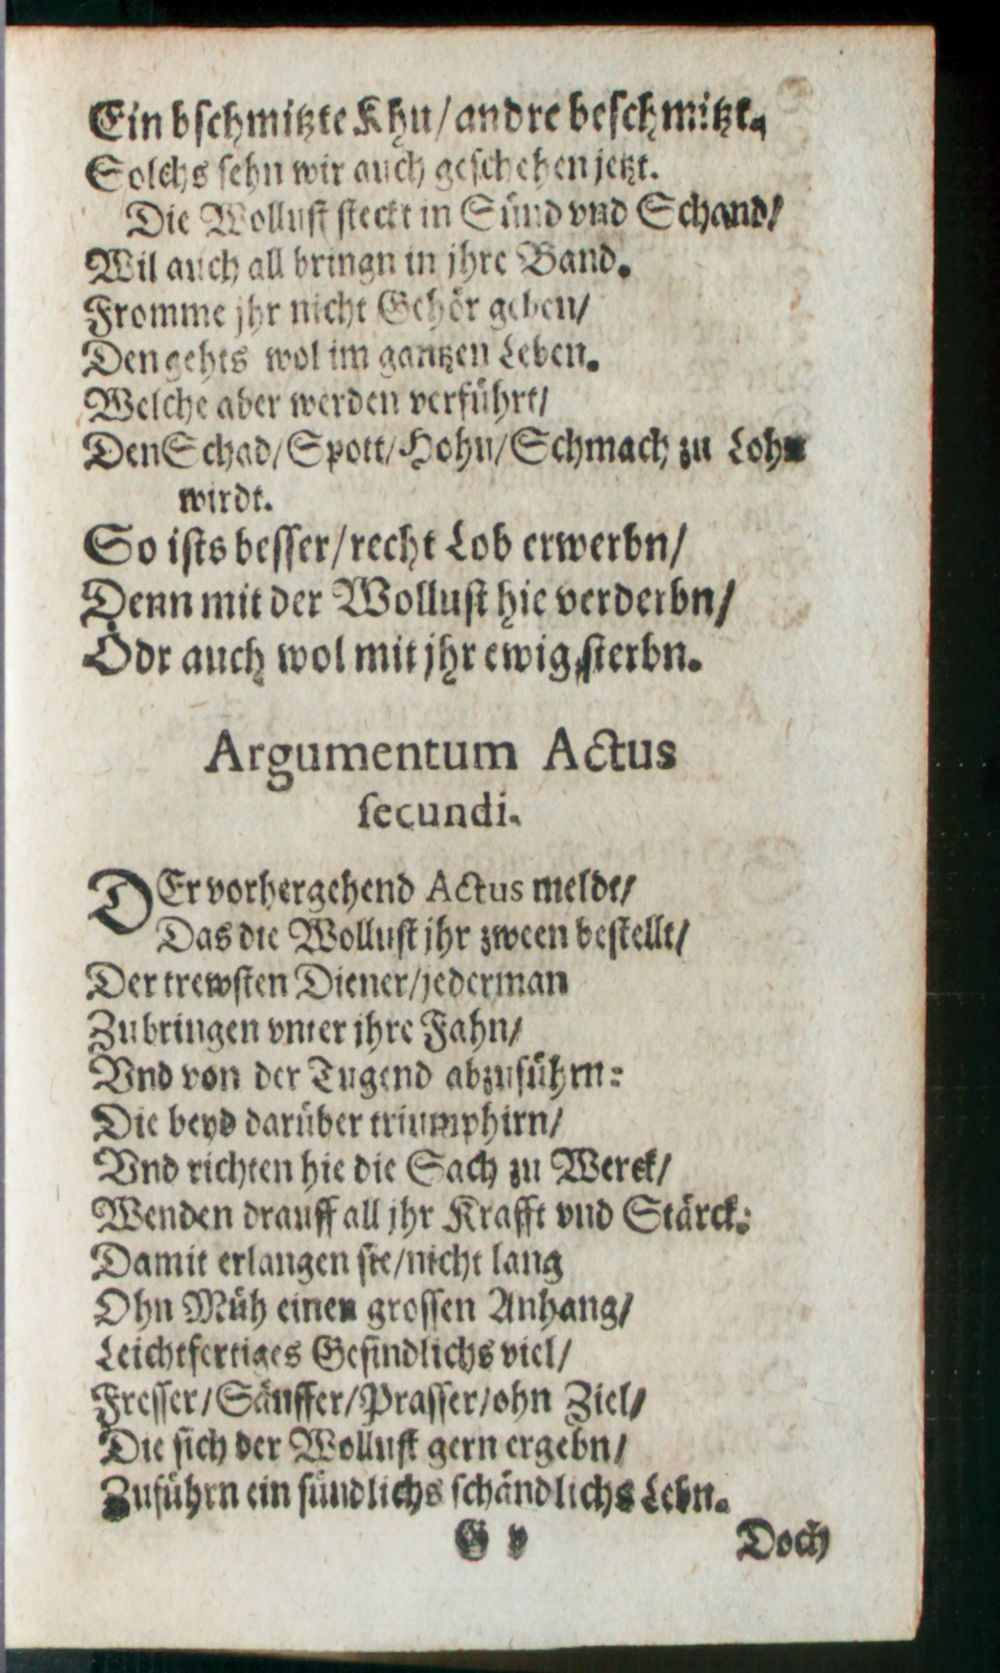 Ein bschmitzte Khu/andre beschmitzt.
Solchs sehn wir auch geschehen jetzt.
Die Wollust steckt in Sünd vnd Schand/
Wil auch all bringn in jhre Band.
Fromme jhr nicht Gehör geben/
Den gehts wol im gantzen Leben.
Welche aber werden verführt/
Den Schad/Spott/Hohn/Schmach zu Lohn
wirdt.
So ists besser/recht Lob erwerbn/
Denn mit der Wollust hie verderbn/
Odr auch wol mit jhr ewig sterbn.
Argumentum Actus
secundi.
DEr vorhergehend Actus meldt/
Das die Wollust jhr zween bestellt/
Der trewsten Diener/jederman
Zubringen vnter jhre Fahn/
Vnd von der Tugend abzuführn:
Die beyd darüber triumphirn/
Vnd richten hie die Sach zu Werck/
Wenden drauff all jhr Krafft vnd Stärck:
Damit erlangen sie/nicht lang
Ohn Müh einen grossen Anhang/
Leichtfertiges Gesindlichs viel/
Fresser/Säuffer/Prasser/ohn Ziel/
Die sich der Wollust gern ergebn/
Zuführn ein sündlichs schändlichs Lebn.
G v Doch